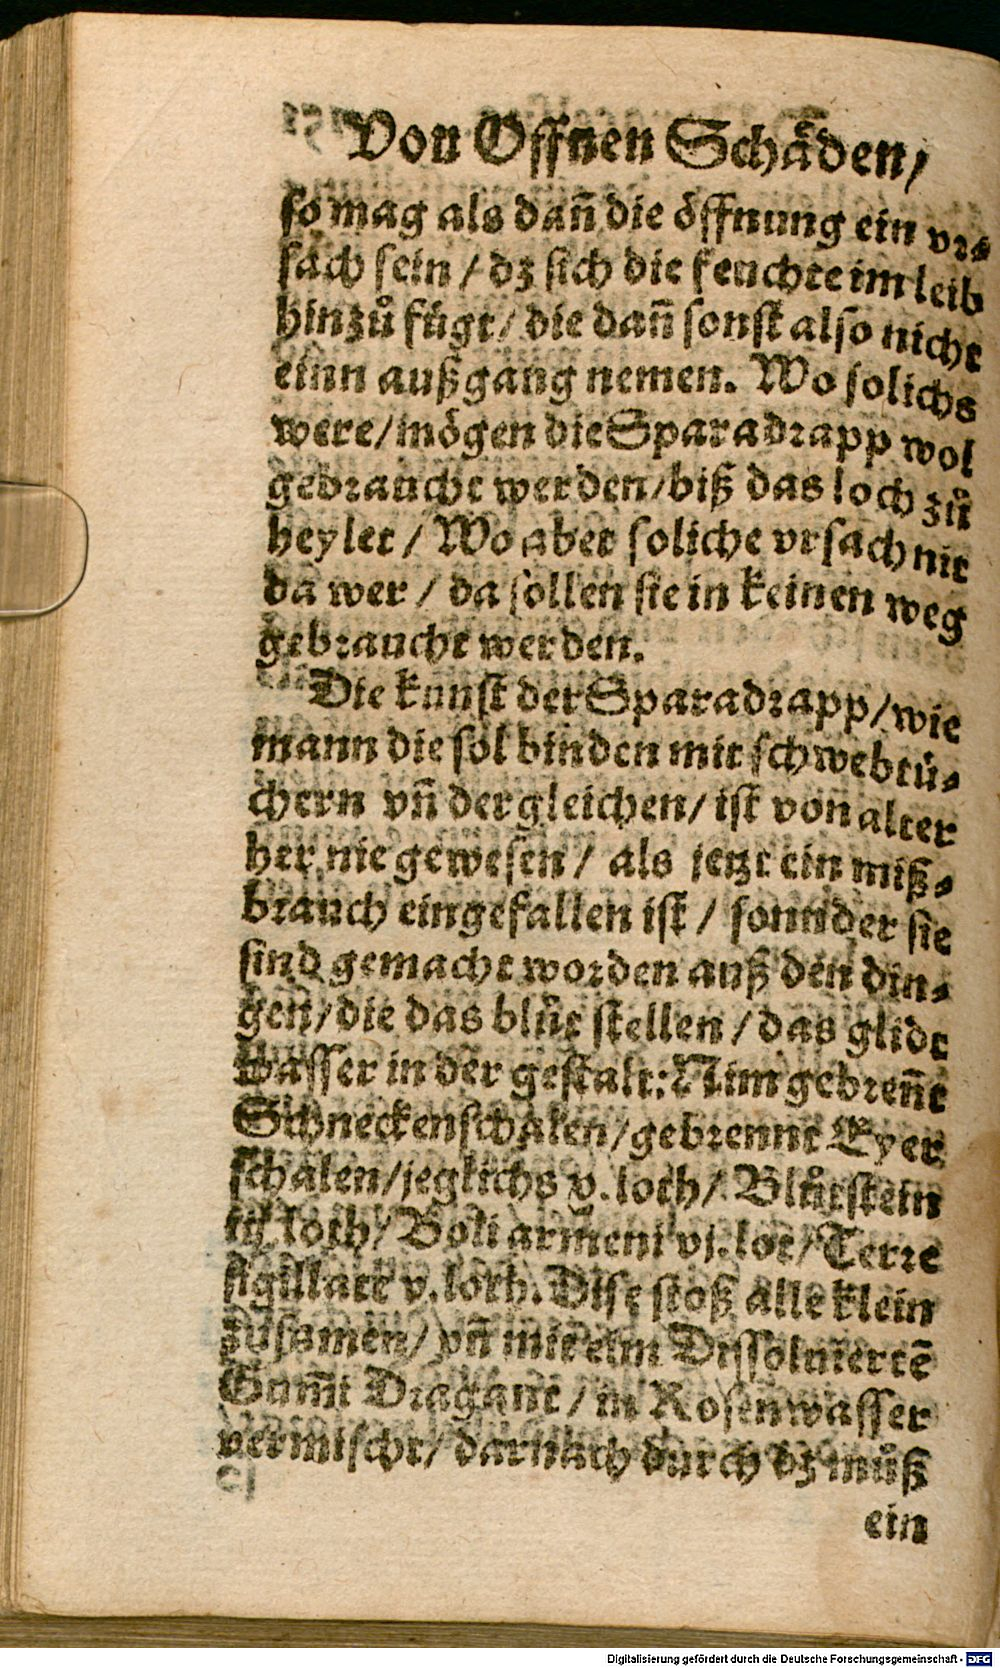 Von Offnen Schäden/
so mag als dañ die öffnung ein vr⸗
sach sein / dz sich die feuchte im leib
hinzů fügt/ die dañ sonst also nicht
einn außgang nemen. Wo solichs
were/mögen die Sparadrapp wol
gebraucht werden/biß das loch zů
heylet / Wo aber soliche vrsach nit
da wer / da sollen sie in keinen weg
gebraucht werden.
Die kunst der Sparadrapp/wie
mann die sol binden mit schwebtü⸗
chern vñ dergleichen/ ist von alter
her nie gewesen / als jetzt ein miß⸗
brauch eingefallen ist / sonnder sie
sind gemacht worden auß den din⸗
gen/die das blůt stellen / das glidt
wasser in der gestalt: Nim gebreñt
Schneckenschalen/gebrennt Eyer
schalen/jeglichs v. loth/ Blůtstein
iij loth/ Boli armeni vj. lot/ Terre
sigillate v. loth. Dise stoß alle klein
zůsamen/ vñ mit eim Dissoluiertē
Gum̃i Dragant / in Rosenwasser
vermischt/ darnach durch dz můß
ein
Digitalisierung gefördert durch die Deutsche Forschungsgemeinschaft - DFG